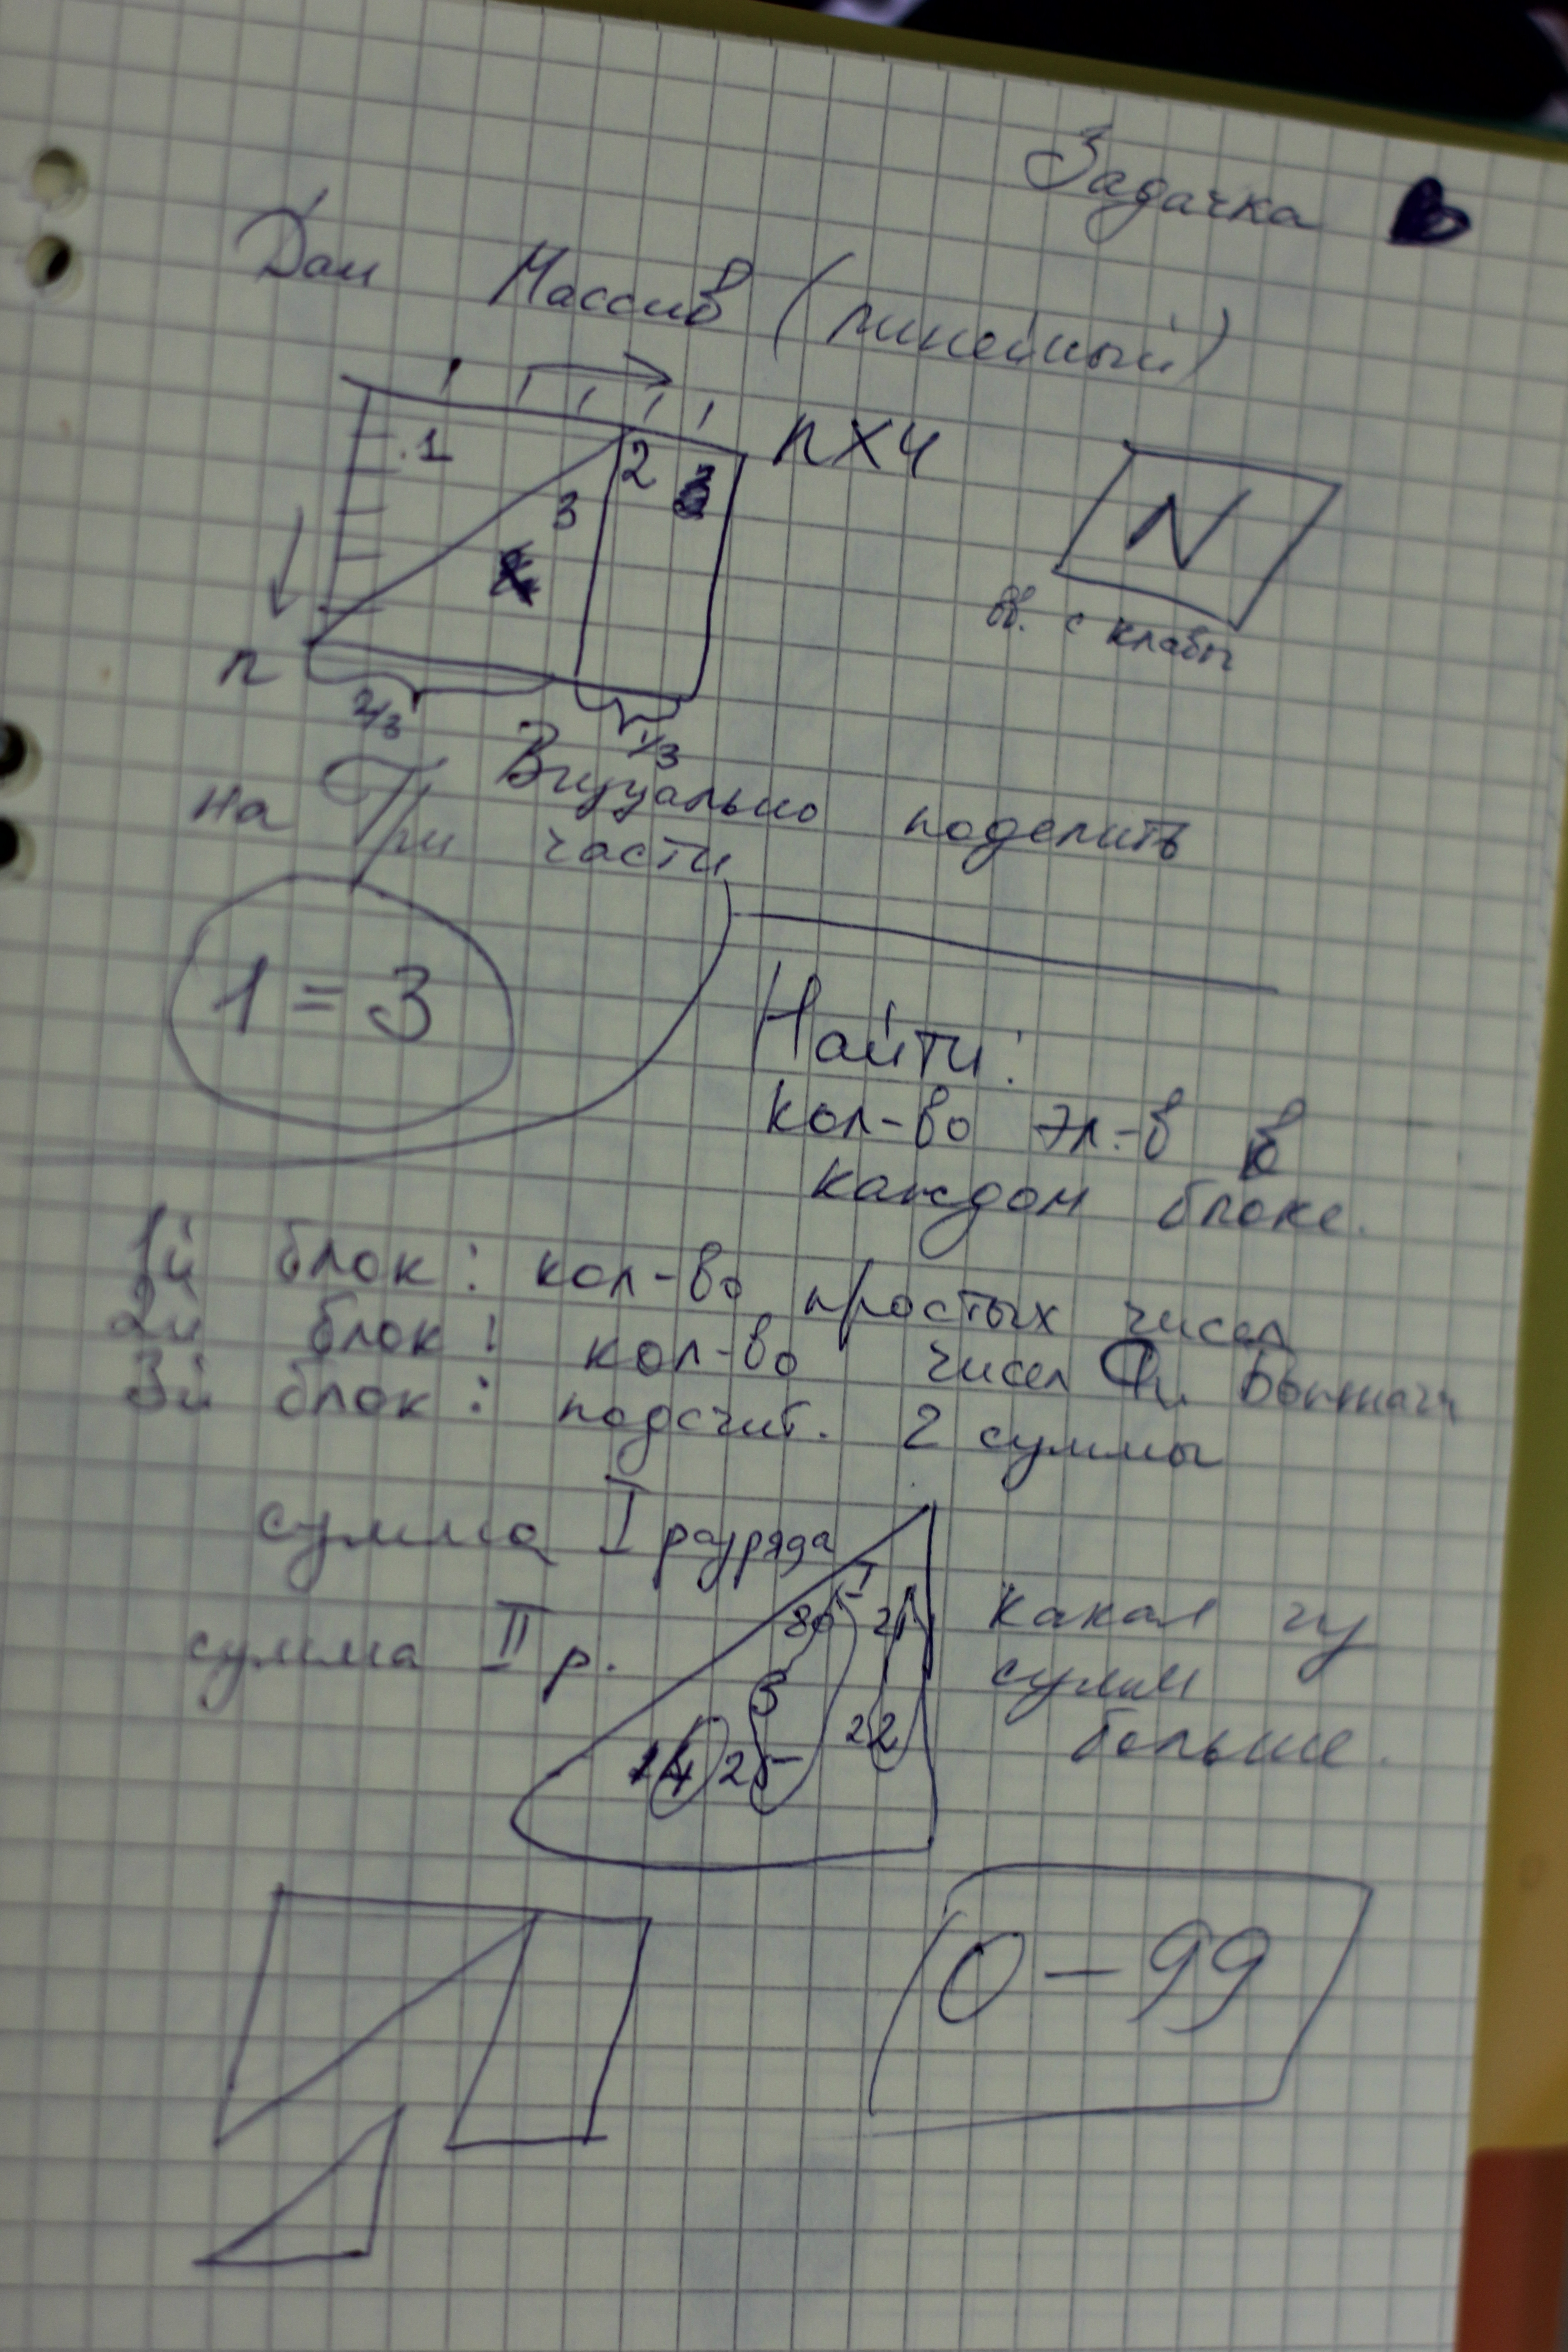 Задачка
Дан Массив (линейный)
1
2
3
n x 4
N
вв. с клавы
n
2/3
1/3
Визуально поделить
на Три части
1 = 3
Найти:
кол-во эл.-в в
каждом блоке.
1й блок: кол-во простых чисел
2й блок: кол-во чисел Фибоначчи
3й блок: подсчит. 2 суммы
сумма I разряда
сумма II р.
I
80 21
5
22
14 25
какая из
сумм
больше.
0 – 99